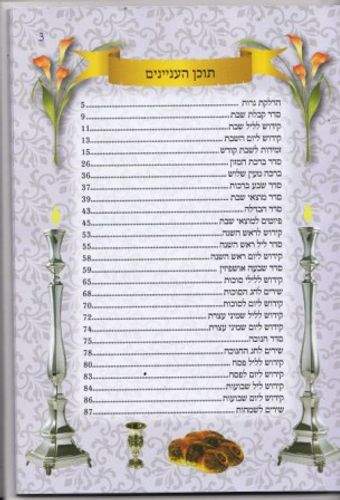 3
תוכן העניינים
הדלקת נרות 5
סדר קבלת שבת 9
קידוש לליל שבת 11
קידוש ליום השבת 13
זמירות לשבת קודש 15
סדר ברכת המזון 26
ברכה מעין שלוש 36
סדר שבע ברכות 37
סדר מוצאי שבת 39
סדר הבדלה 43
פיוטים למוצאי שבת 45
קידוש לראש השנה 53
סדר ליל ראש השנה 55
קידוש ליום ראש השנה 58
סדר שבעה אושפיזין 59
קידוש ללילי סוכות 65
שירים לחג הסוכות 68
קידוש ליום לסוכות 67
קידוש לליל שמיני עצרת 72
קידוש ליום שמיני עצרת 74
סדר חנוכה 75
שירים לחג החנוכה 78
קידוש לליל פסח 80
קידוש ליום לפסח 82
קידוש לליל שבועות 84
קידוש ליום שבועות 86
שירים לשמחות 87